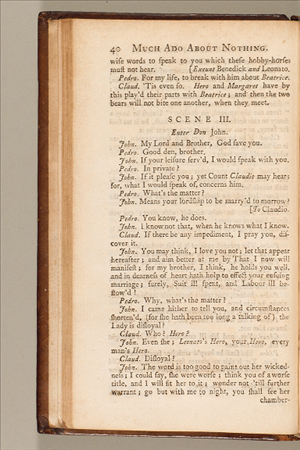 40 MUCH ADO ABOUT NOTHING.
wise words to speak to you which these hobby-horses
must not hear. [Exeunt Benedick and Leonato.
Pedro. For my life, to break with him about Beatrice.
Claud. 'Tis even so. Hero and Margaret have by
this play'd their parts with Beatrice; and then the two
bears will not bite one another, when they meet.
SCENE III.
Enter Don John.
John. My Lord and Brother, God save you.
Pedro. Good den, brother.
John. If your leisure serv'd, I would speak with you.
Pedro. In private?
John. If it please you; yet Count Claudio may hear;
for, what I would speak of, concerns him.
Pedro. What's the matter?
John. Means your lordship to be marry'd to-morrow?
[To Claudio.
Pedro. You know, he does.
John. I know not that, when he knows what I know.
Claud. If there be any impediment, I pray you, dis-
cover it.
John. You may think, I love you not; let that appear
hereafter; and aim better at me by That I now will
manifest; for my brother, I think, he holds you well,
and in dearness of heart hath help to effect your ensuing
marriage; surely, Suit ill spent, and Labour ill be-
stow'd!
Pedro. Why, what's the matter?
John. I came hither to tell you, and circumstances
shorten'd, (for she hath been too long a talking of) the
Lady is disloyal.
Claud. Who? Hero?
John. Even she; Leonato's Hero, your Hero, every
man's Hero.
Claud. Disloyal?
John. The word is too good to paint out her wicked-
ness; I could say, she were worse; think you of a worse
title, and I will fit her to it; wonder not 'till further
warrant; go but with me to night, you shall see her
chamber-